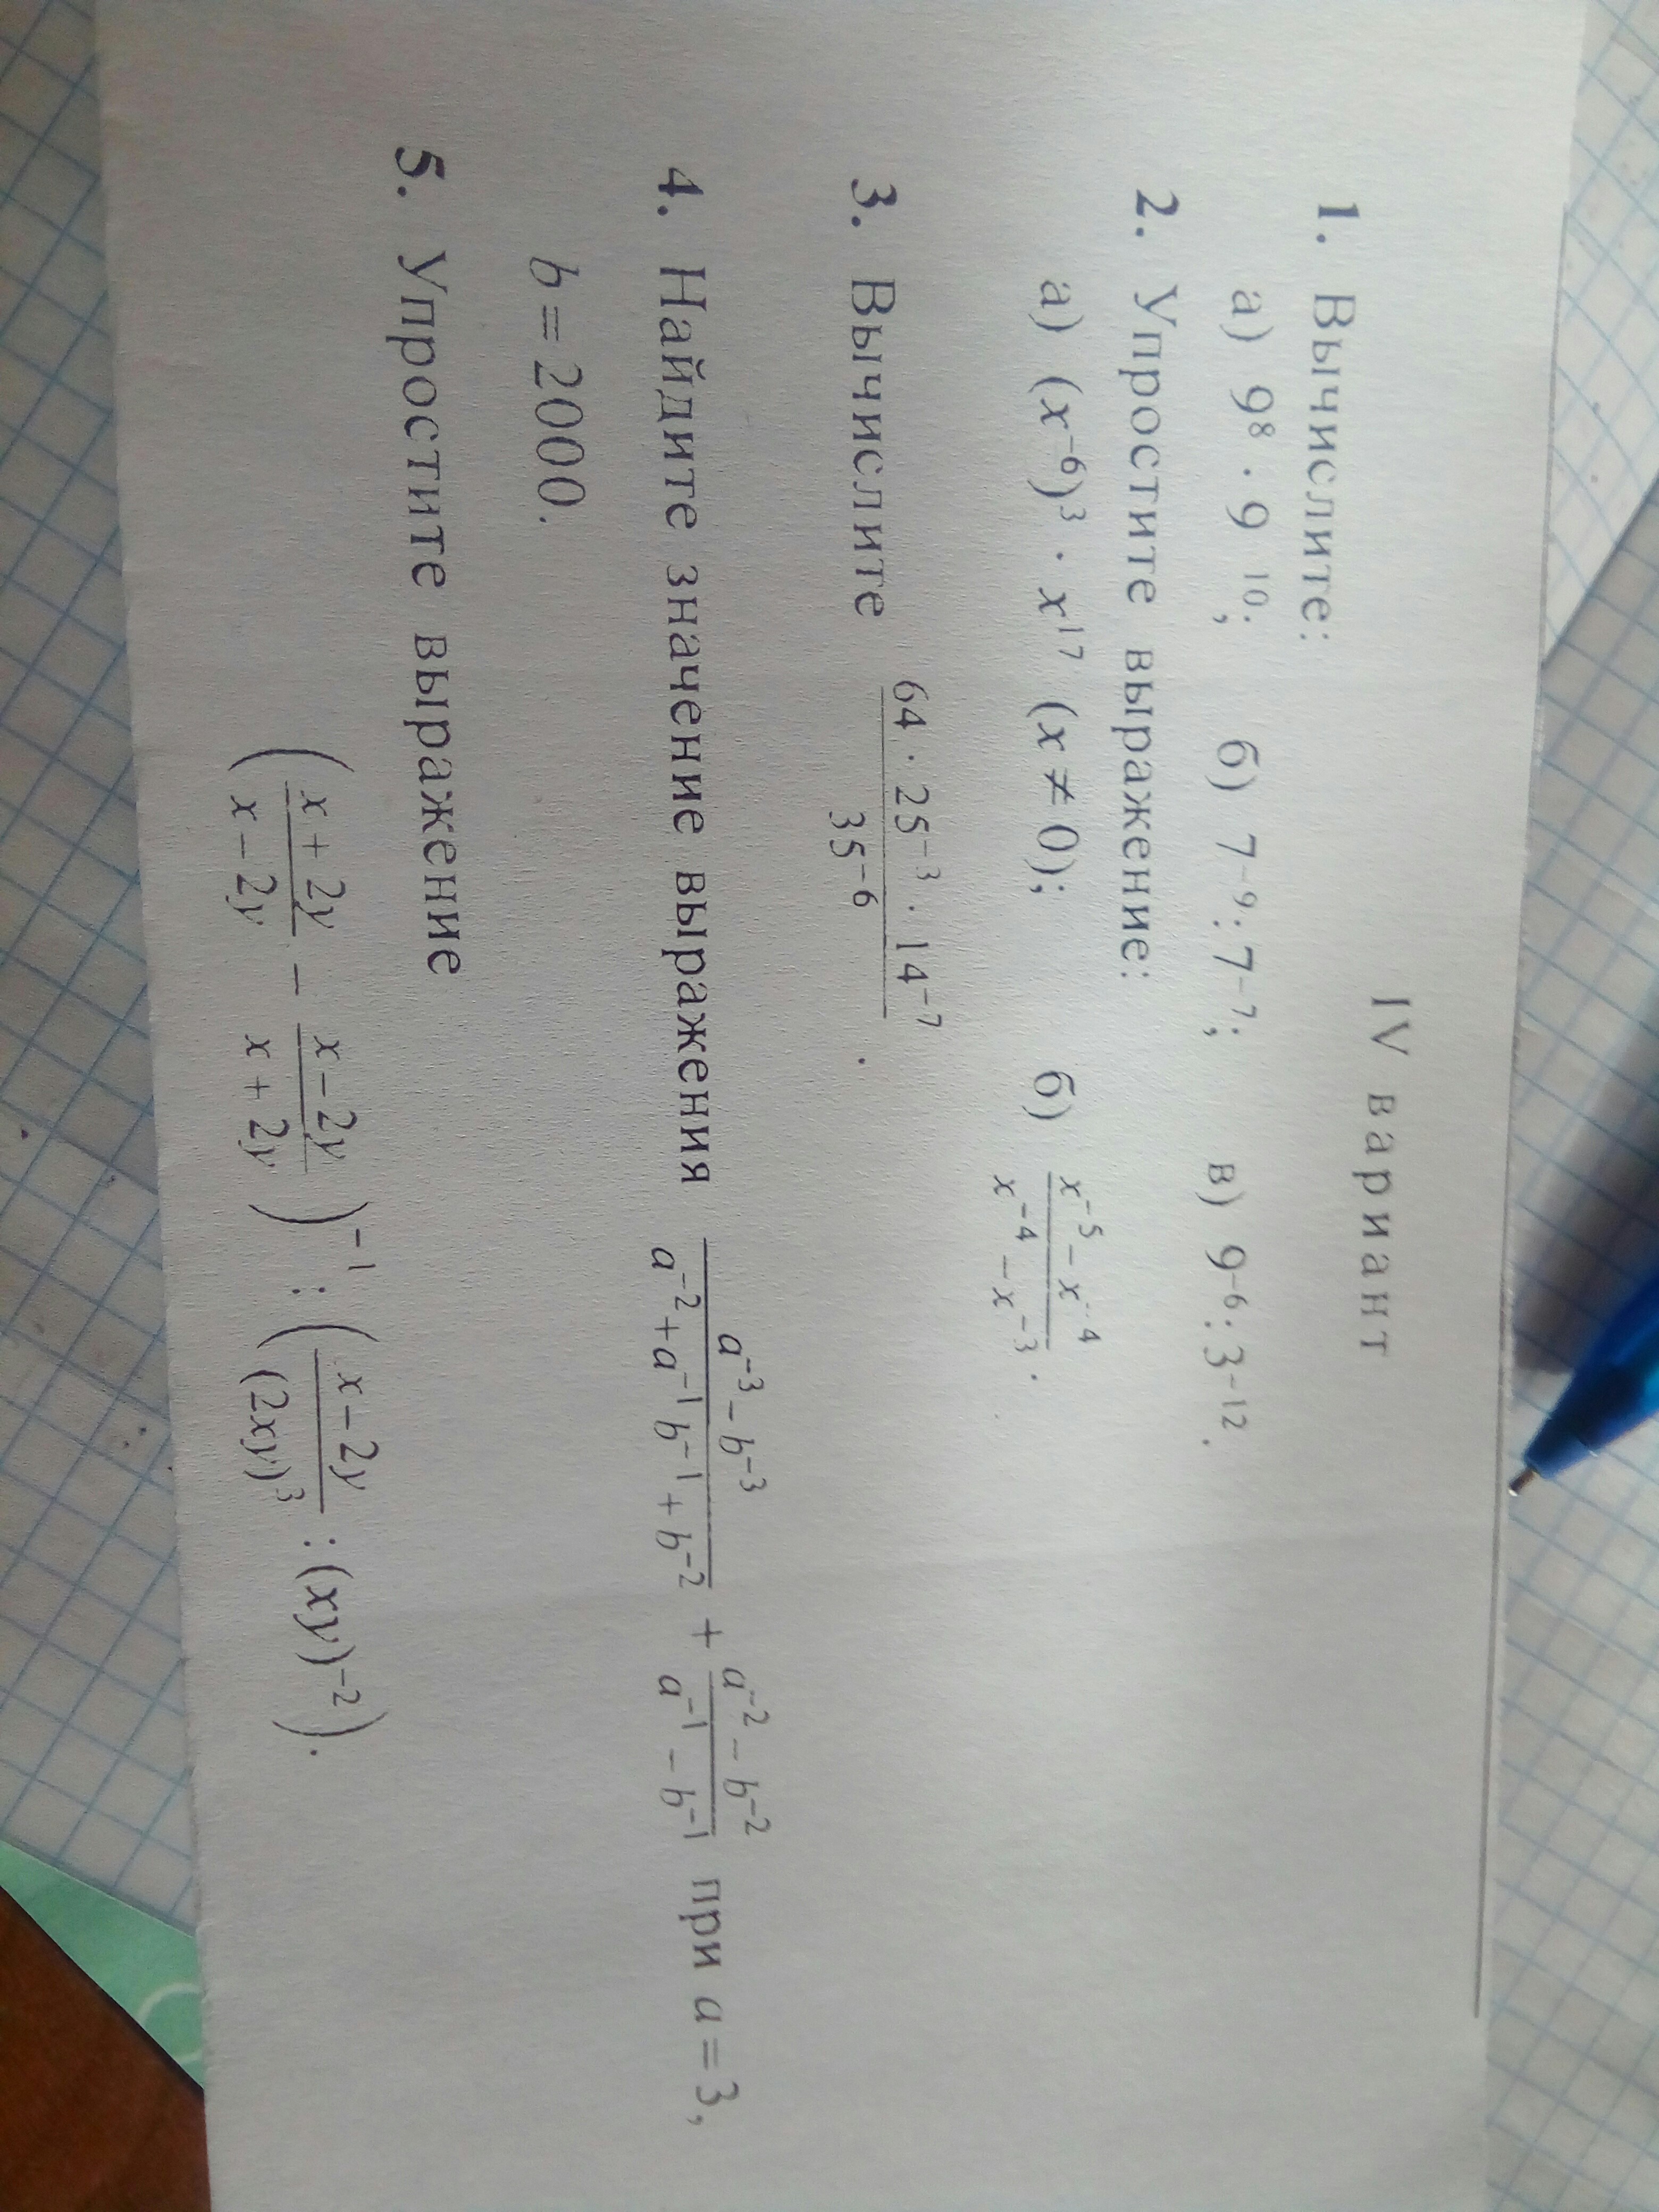 IV вариант
1. Вычислите:
а) 9⁸ · 9 ¹⁰; б) 7⁻⁹ : 7⁻⁷; в) 9⁻⁶ : 3⁻¹².
2. Упростите выражение:
а) (x⁻⁶)³ · x¹⁷ (x ≠ 0); б) (x⁻⁵ − x⁻⁴)/(x⁻⁴ − x⁻³).
3. Вычислите (64 · 25⁻³ · 14⁻⁷)/(35⁻⁶).
4. Найдите значение выражения (a⁻³ − b⁻³)/(a⁻² + a⁻¹b⁻¹ + b⁻²) + (a⁻² − b⁻²)/(a⁻¹ − b⁻¹) при a = 3,
b = 2000.
5. Упростите выражение
((x + 2y)/(x − 2y) − (x − 2y)/(x + 2y))⁻¹ : ((x − 2y)/(2xy)³ : (xy)⁻²).